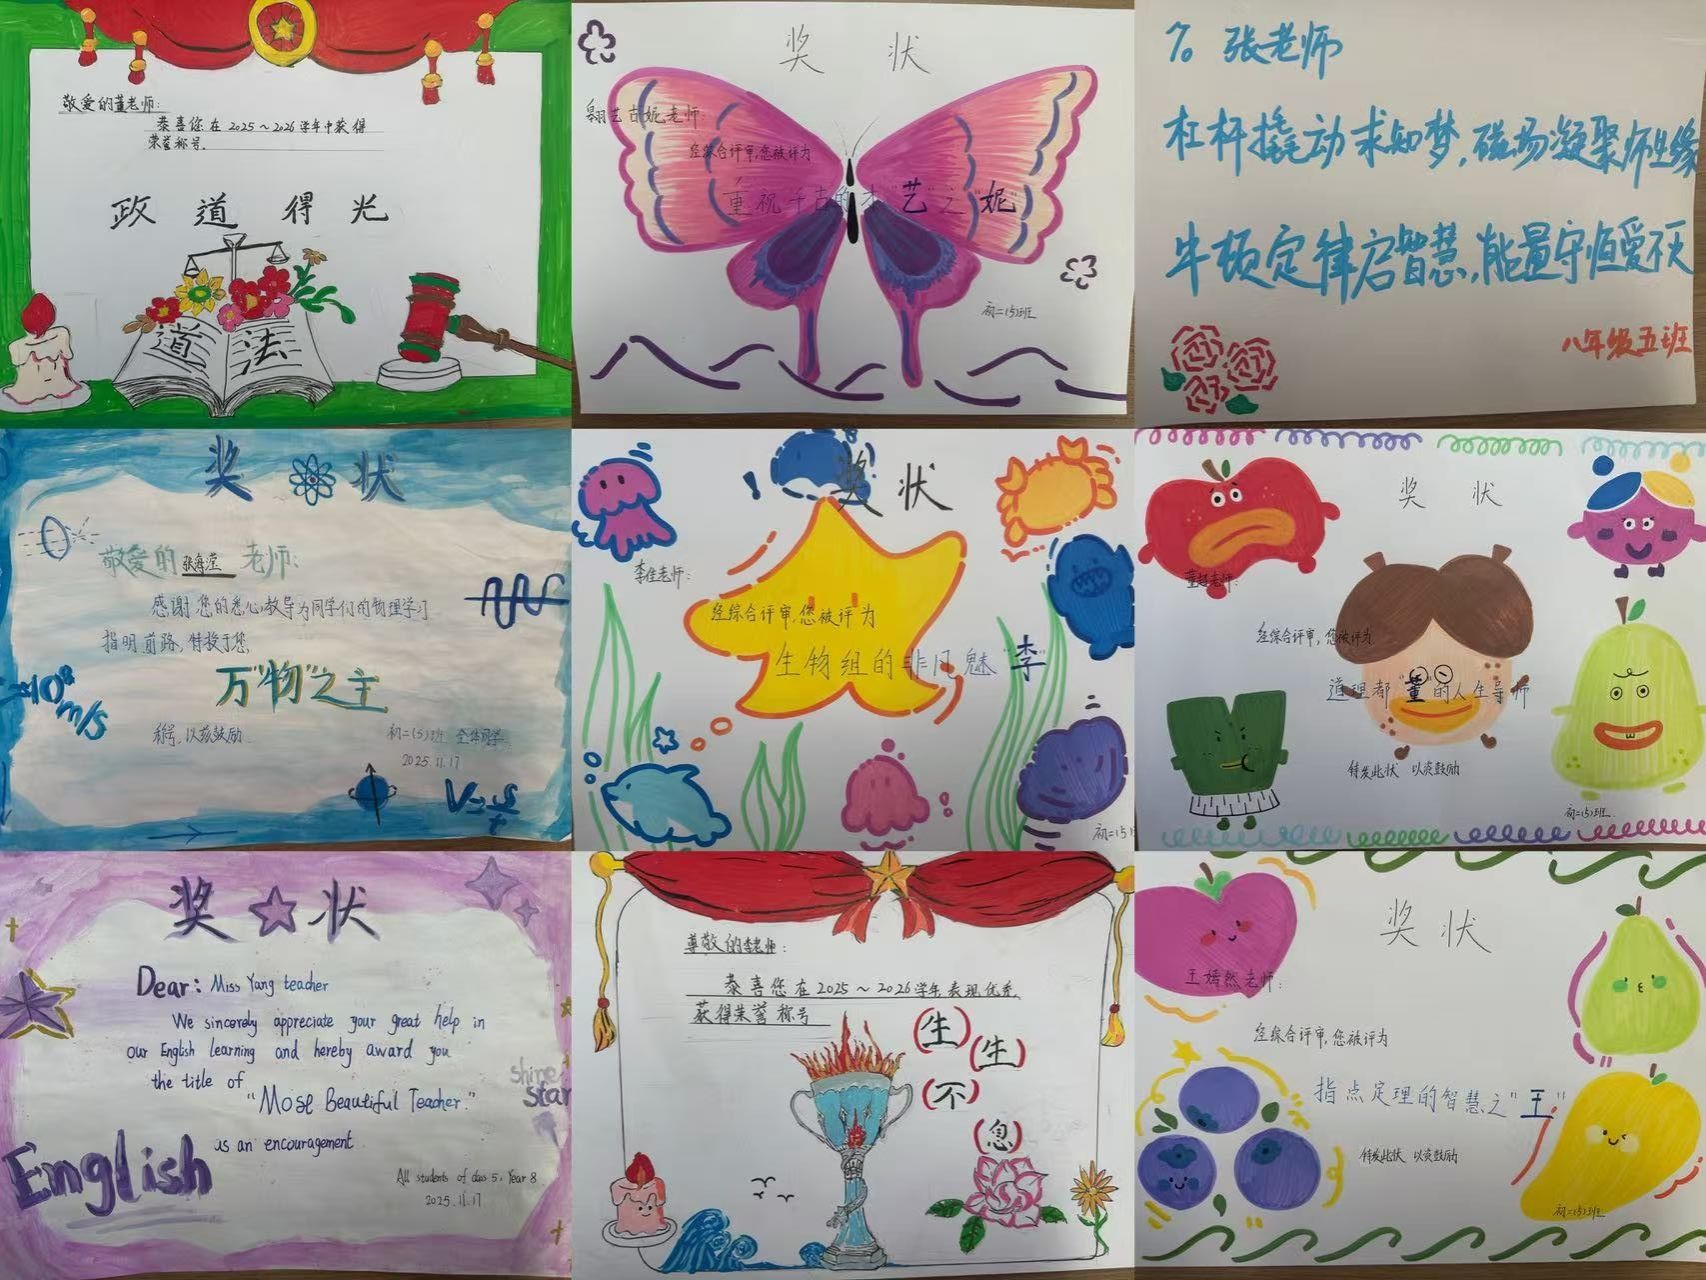 敬爱的董老师:
恭喜您在2025~2026学年中获得
荣誉称号。
政道得光
道法
奖状
翱艺古妮老师:
经综合评审,您被评为
重视千古的才"艺"之"妮"
初二(5)班
7。张老师
杠杆撬动求知梦,磁场凝聚师生缘
牛顿定律启智慧,能量守恒爱不灭
八年级五班
奖状
敬爱的张海滢老师:
感谢您的悉心教导为同学们的物理学习
指明前路,特授于您
万"物"之主
称号,以兹鼓励
初二(5)班 全体同学
2025.11.17
m/s
奖状
李佳老师:
经综合评审,您被评为
生物组的非凡魅"李"
初二(5)
奖状
董超老师:
经综合评审,您被评为
道理都"董"的人生导师
特发此状 以资鼓励
初二(5)班
奖状
Dear: Miss Yang teacher
We sincerely appreciate your great help in
our English learning and hereby award you
the title of
"Mose Beautiful Teacher."
is an encouragement
shine
star
English
All students of class 5, Year 8
2025.11.17
尊敬的李老师:
恭喜您在2025~2026学年表现优秀,
获得荣誉称号
(生)(生)
(不)
(息)
奖状
王嫣然老师:
经综合评审,您被评为
指点定理的智慧之"王"
特发此状 以资鼓励
初二(5)班